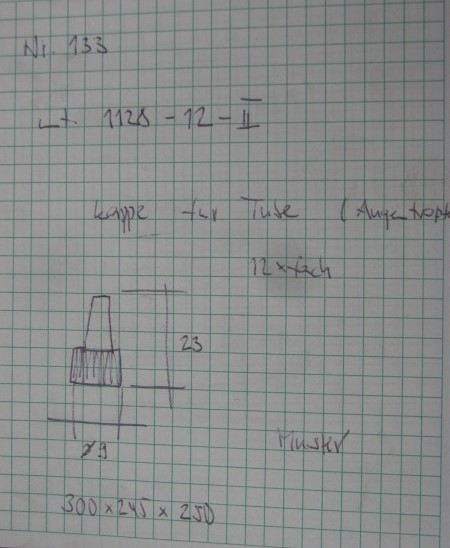 Nr. 133
1128 - 12 - II
Kappe für Tube (Augentropf
12 x fach
23
ø9
Muster
300 x 245 x 250